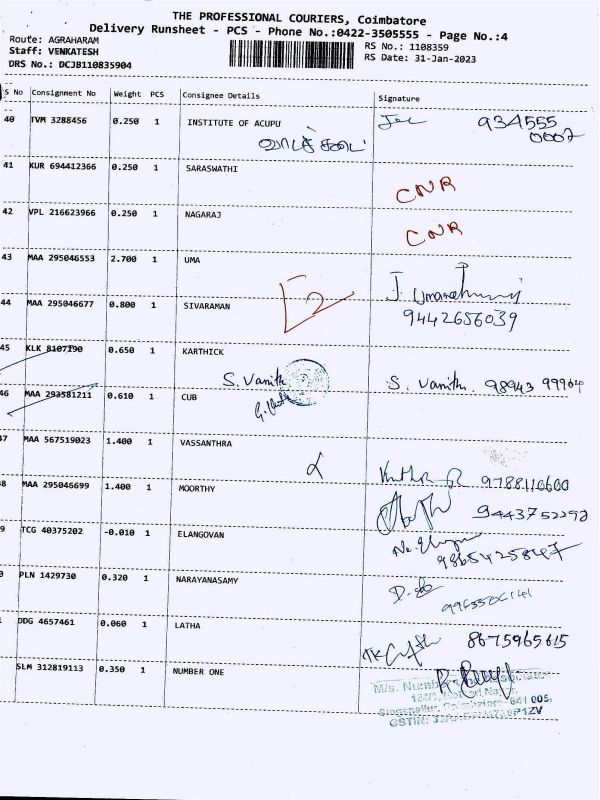 THE PROFESSIONAL COURIERS, Coimbatore
Delivery Runsheet - PCS - Phone No.:0422-3505555 - Page No.:4
Route: AGRAHARAM
Staff: VENKATESH
DRS No.: DCJB110835904
RS No.: 1108359
RS Date: 31-Jan-2023
S No Consignment No Weight PCS Consignee Details Signature
40 TVM 3288456 0.250 1 INSTITUTE OF ACUPU 934555
0007
41 KUR 694412366 0.250 1 SARASWATHI CNR
42 VPL 216623966 0.250 1 NAGARAJ CNR
43 MAA 295046553 2.700 1 UMA J. Umamaheswari
44 MAA 295046677 0.800 1 SIVARAMAN 9442656039
45 KLK 8107190 0.650 1 KARTHICK
S. Vanith S. Vanith. 98943 99964
46 MAA 293581211 0.610 1 CUB
47 MAA 567519023 1.400 1 VASSANTHRA
9788110600
48 MAA 295046699 1.400 1 MOORTHY 9443752292
9 TCG 40375202 -0.010 1 ELANGOVAN
PLN 1429730 0.320 1 NARAYANASAMY
DDG 4657461 0.060 1 LATHA 8675965615
SLM 312819113 0.350 1 NUMBER ONE
M/s. 
641 005.
GSTIN: